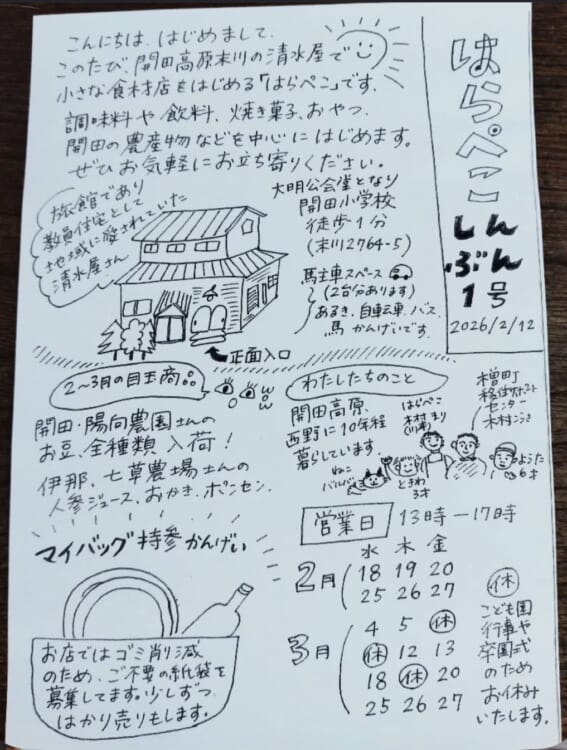 はらぺこ
しん
ぶん
1号
2026/2/12
こんにちは、はじめまして、
このたび、開田高原末川の清水屋で
小さな食材店をはじめる「はらぺこ」です。
調味料や飲料、焼き菓子、おやつ、
開田の農産物などを中心にはじめます。
ぜひお気軽にお立ち寄りください。
旅館であり
教員住宅として
地域に愛されていた
清水屋さん
大明公会堂となり
開田小学校
徒歩1分
(末川2764-5)
駐車スペース
(2台分あります)
あるき、自転車、バス、
馬 かんげいです。
正面入口
2〜3月の目玉商品
WOW
WOW
開田・陽向農園さんの
お豆、全種類入荷!
伊那、七草農場さんの
人参ジュース、おかき、ポンセン、
わたしたちのこと
開田高原、
西野に10年程
暮らしています。
はらぺこ
木村まり
木曽町
移住サポート
センター
木村こうき
ねこ
バルバ
ときわ
3才
ようた
6才
マイバッグ持参かんげい
お店ではゴミ削減
のため、ご不要の紙袋を
募集してます。少しずつ
はかり売りもします。
営業日 13時―17時
水 木 金
2月 18 19 20
25 26 27
3月 4 5 休
休 12 13
18 休 20
25 26 27
休
こども園
行事や
卒園式
のため
お休み
いたします。